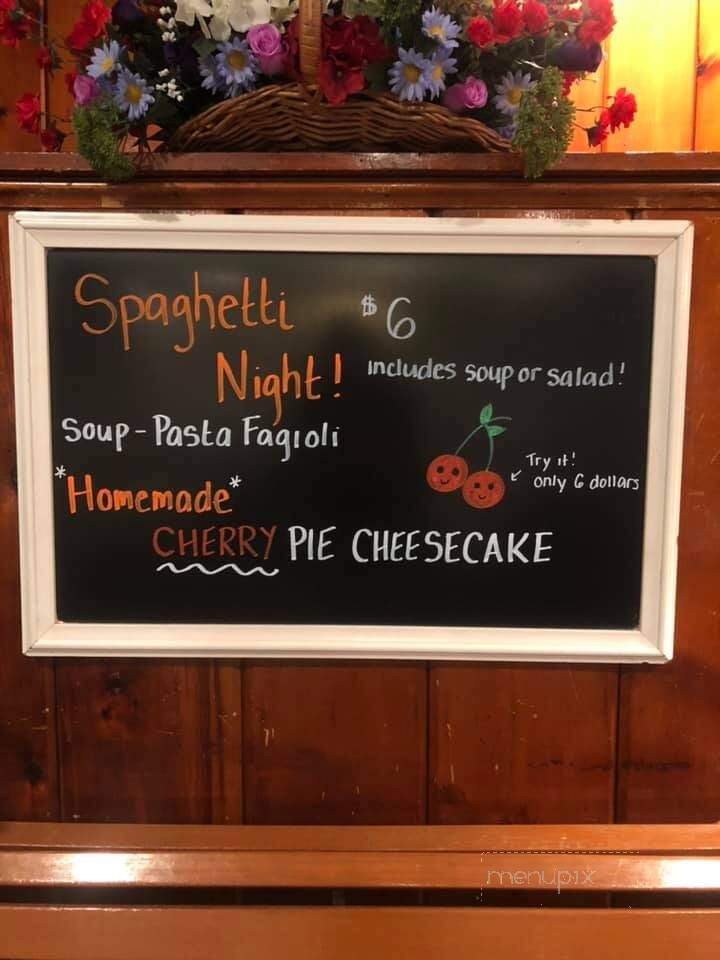 Spaghetti
Night!
$6
includes soup or salad!
Soup - Pasta Fagioli
*Homemade*
CHERRY PIE CHEESECAKE
Try it!
only 6 dollars
menupix